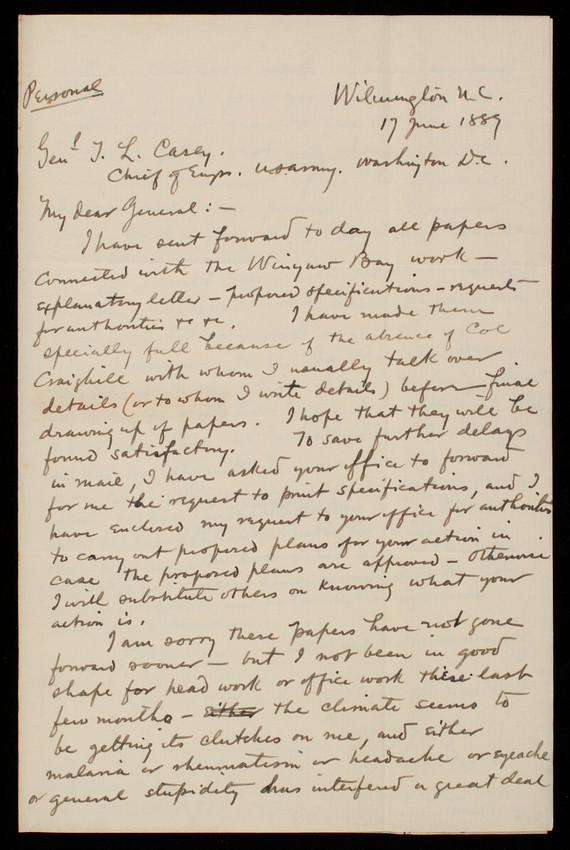 Personal
Wilmington N.C.
17 June 1889
Genl T. L. Casey.
Chief of Engrs. U.S. Army. Washington D.C.
My dear General: —
I have sent forward to day all papers
connected with the Winyaw Bay work —
explanatory letter — proposed specifications — requests
for authorities &c &c. I have made them
specially full because of the absence of Col
Craighill with whom I usually talk over
details (or to whom I write details) before final
drawing up of papers. I hope that they will be
found satisfactory. To save further delays
in mail, I have asked your office to forward
for me the request to print specifications, and I
have enclosed my request to your office for authorities
to carry out proposed plans for your action in
case the proposed plans are approved — Otherwise
I will substitute others on knowing what your
action is.
I am sorry these papers have not gone
forward sooner — but I not been in good
shape for head work or office work these last
few months — either the climate seems to
be getting its clutches on me, and either
malaria or rheumatism or headache or eyeache
or general stupidity has interfered a great deal